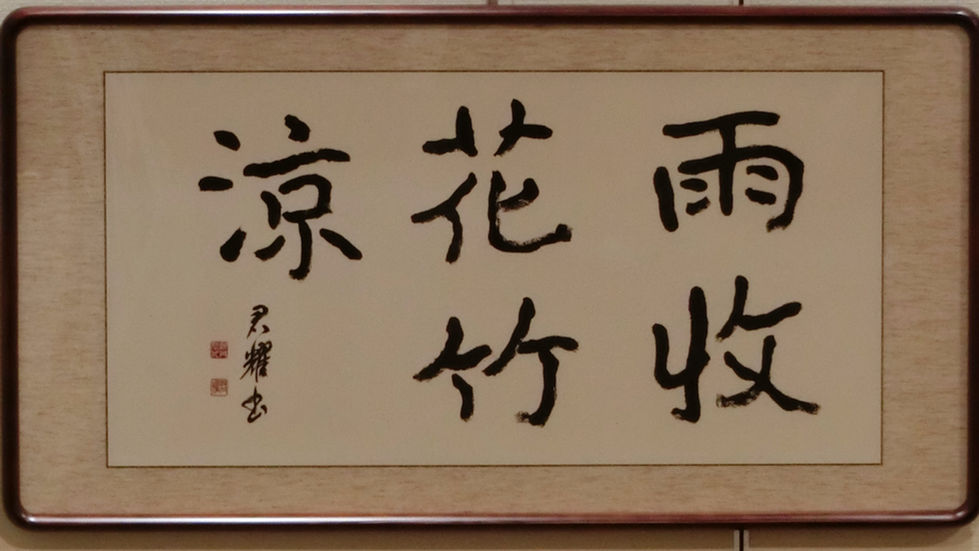 雨收
花竹
涼
君耀书